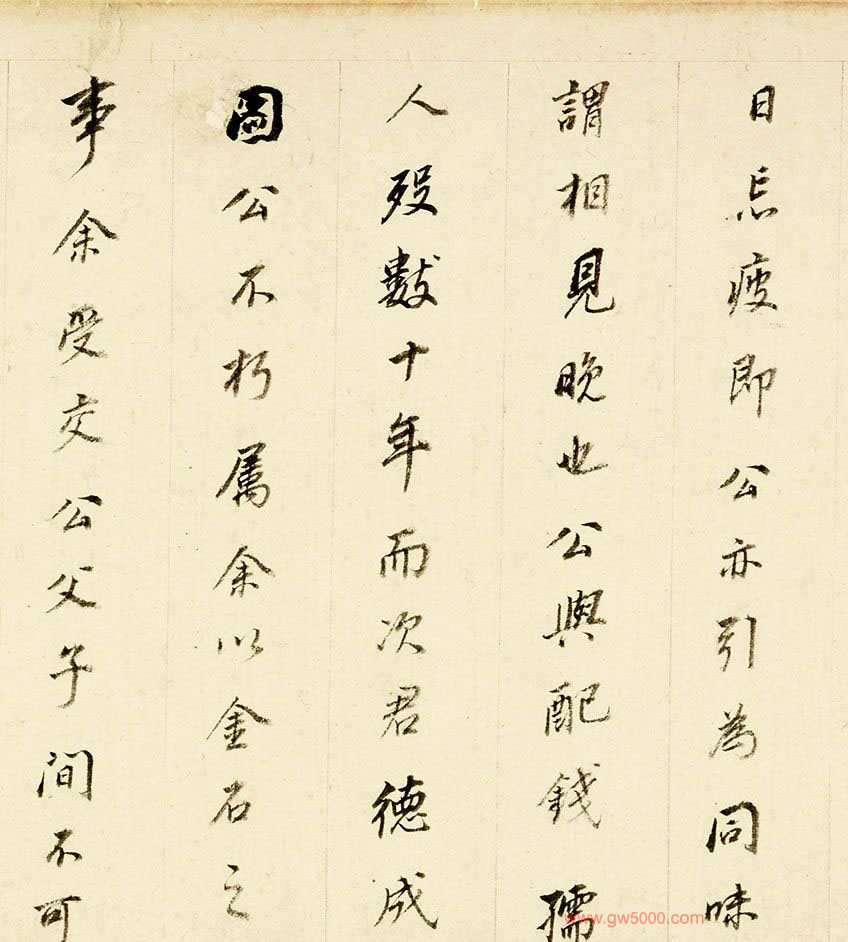 日忘疲即公亦引為同味
謂相見晚也公與配錢孺
人歿數十年而次君德成
圖公不朽屬余以金石之
事余受交公父子間不可
www.gw5000.com